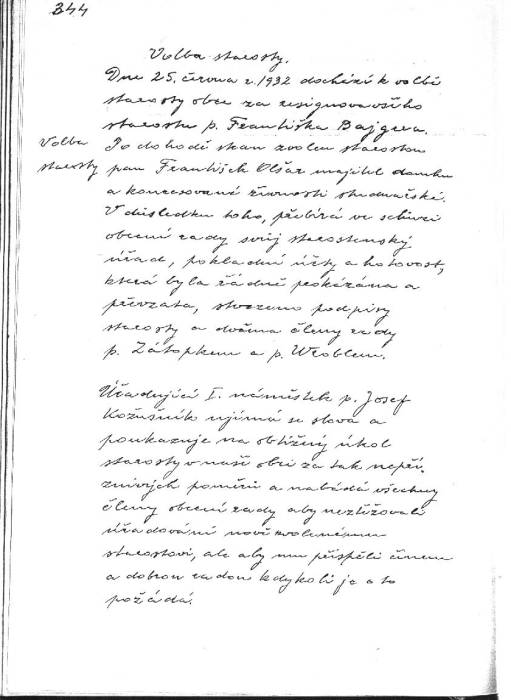 344
Volba starosty.
Dne 25. června r. 1932 dochází k volbě
starosty obce za resignovavšího
starostu p. Františka Bajgera.
Volba
starosty
Po dohodě stran zvolen starostou
pan František Olšar majitel domku
a koncesované živnosti studnařské.
V důsledku toho, přebírá ve schůzi
obecní rady svůj starostenský
úřad, pokladní účty a hotovost,
která byla řádně prokázána a
převzata, stvrzeno podpisy
starosty a dvěma členy rady
p. Zátopkem a p. Wroblem.
Úřadující I. náměstek p. Josef
Kožušník ujímá se slova a
poukazuje na obtížný úkol
starosty v naší obci za tak nepří-
znivých poměrů a nabádá všechny
členy obecní rady aby neztěžovali
úřadování nově zvolenému
starostovi, ale aby mu přispěli činem
a dobrou radou kdykoli je o to
požádá.